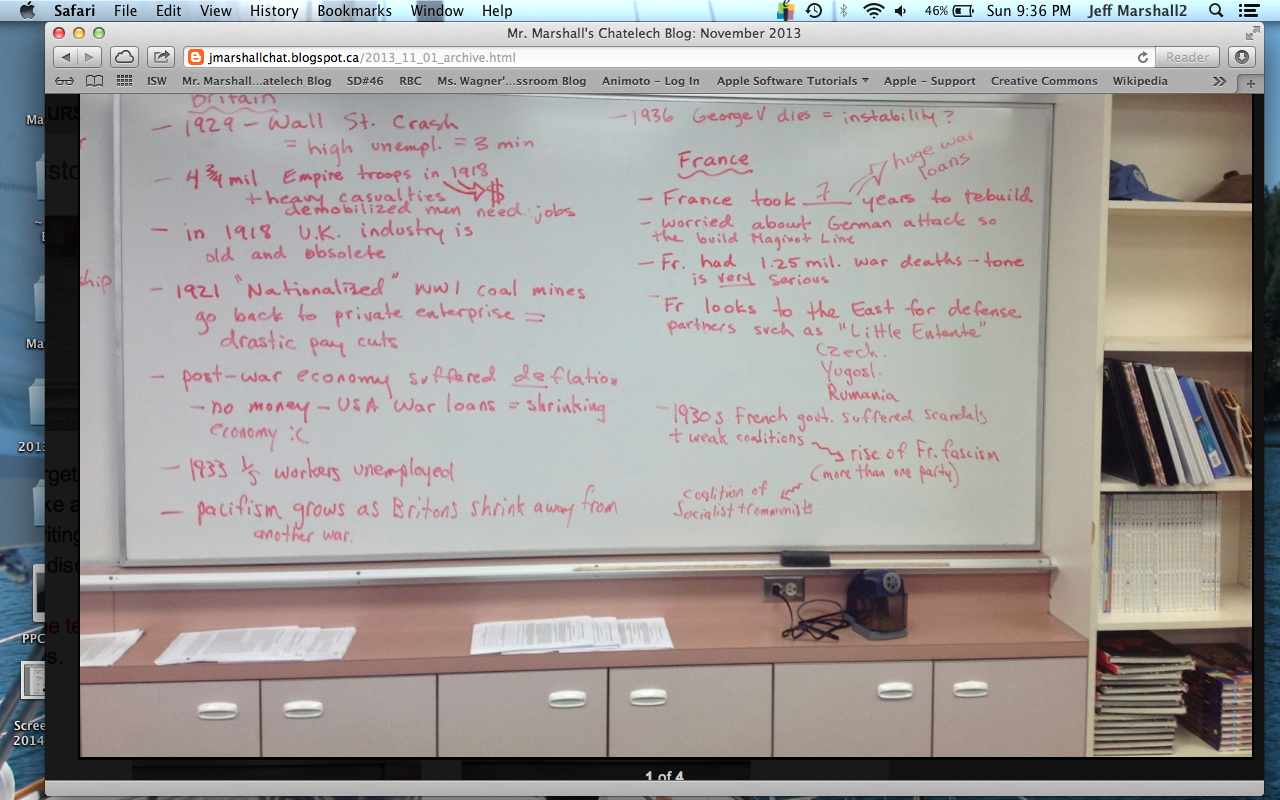 Safari File Edit View History Bookmarks Window Help 46% Sun 9:36 PM Jeff Marshall2
Mr. Marshall's Chatelech Blog: November 2013
jmarshallchat.blogspot.ca/2013_11_01_archive.html Reader
ISW Mr. Marshall...atelech Blog SD#46 RBC Ms. Wagner'...ssroom Blog Animoto - Log In Apple Software Tutorials Apple - Support Creative Commons Wikipedia
Britain
- 1929 - Wall St. Crash
= high unempl. = 3 min
- 4 3/4 mil Empire troops in 1918
+ heavy casualties $
demobilized men need jobs
- in 1918 U.K. industry is
old and obsolete
- 1921 "Nationalized" WW1 coal mines
go back to private enterprise =
drastic pay cuts
- post-war economy suffered deflation
- no money - USA War loans = shrinking
economy :(
- 1933 1/5 workers unemployed
- pacifism grows as Britons shrink away from
another war.
- 1936 George V dies = instability?
France
huge war
loans
- France took 7 years to rebuild
- worried about German attack so
the build Maginot Line
- Fr. had 1.25 mil. war deaths - tone
is very serious
- Fr looks to the East for defense
partners such as "Little Entente"
Czech.
Yugosl.
Rumania
- 1930s French govt. suffered scandals
+ weak coalitions
rise of Fr. fascism
(more than one party)
coalition of
Socialist + Communists
ship
Ma
Ma
2013
PPC
Scree
2014
1 of 4